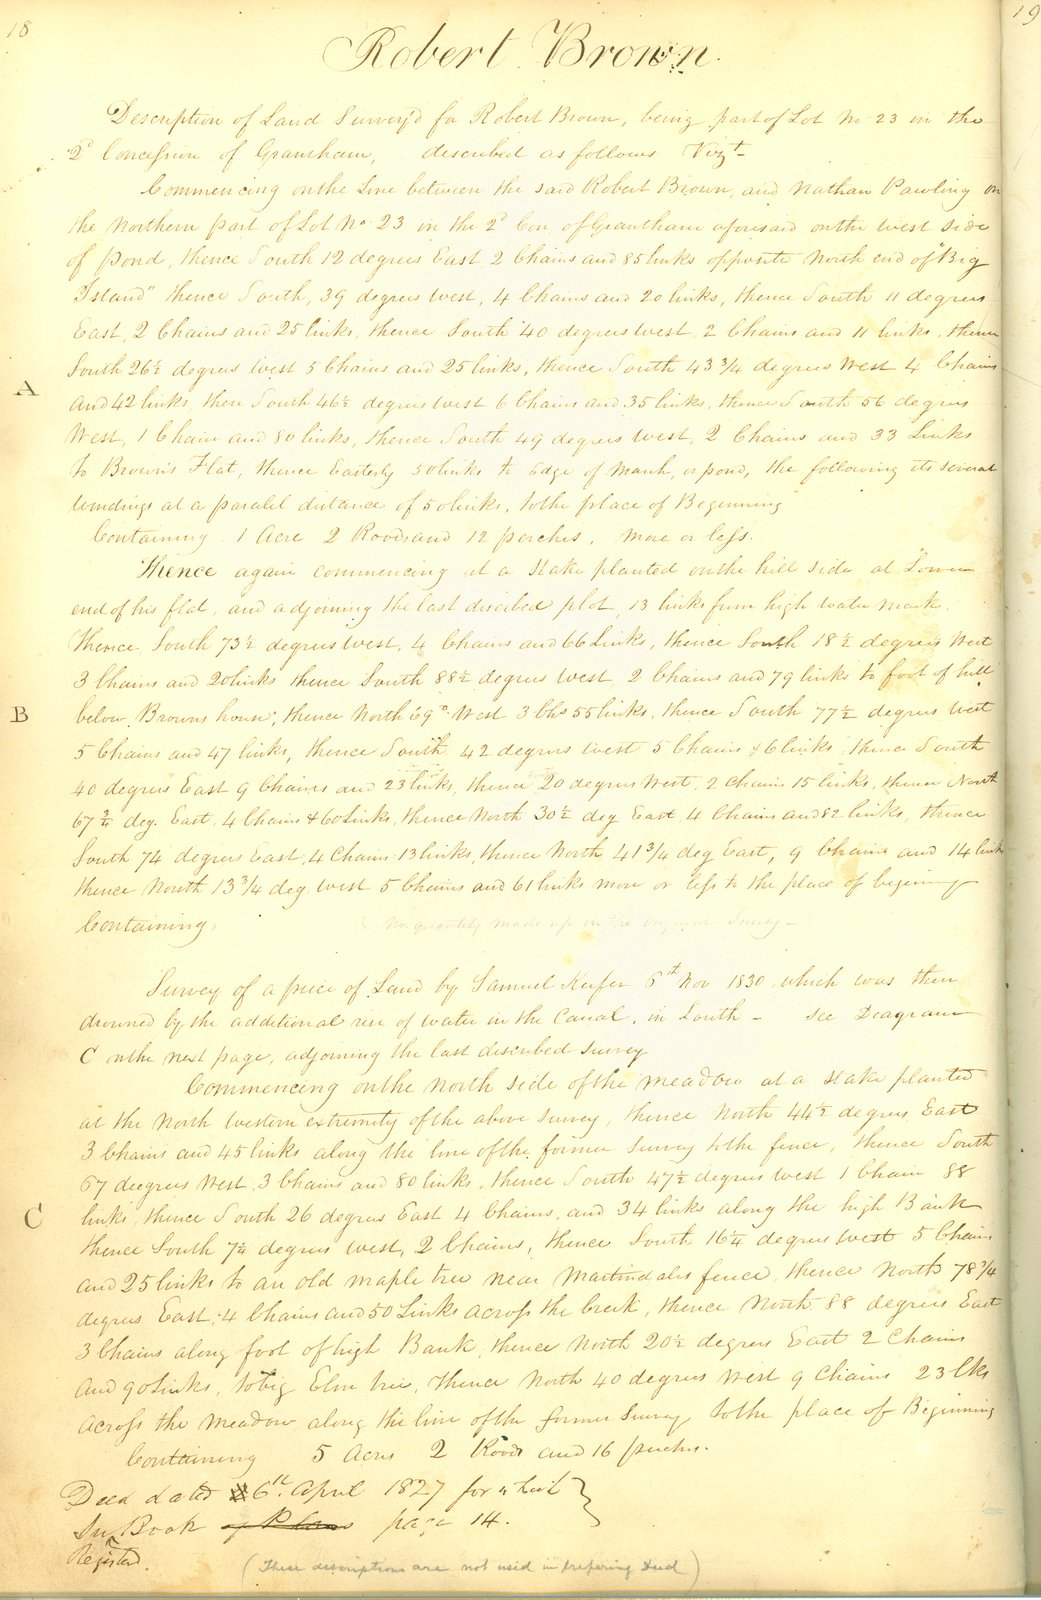 18
19
Robert Brown.
Description of Land Survey'd for Robert Brown, being part of Lot No 23 in the
2d Concession of Grantham, described as follows Vizt
Commencing on the Line between the said Robert Brown, and Nathan Pawling on
the Northern part of Lot No 23 in the 2d Con. of Grantham aforesaid on the west side
of pond, thence South 12 degrees East 2 Chains and 85 links opposite North end of "Big
Island" thence South, 39 degrees West, 4 Chains and 20 links, thence South 11 degrees
East, 2 Chains and 25 links, thence South 40 degrees West, 2 Chains and 11 links, thence
South 26½ degrees West 5 Chains and 25 links, thence South 43 3/4 degrees West 4 Chains
A
and 42 links, then South 46½ degrees West 6 Chains and 35 links, thence South 56 degrees
West, 1 Chain and 80 links, thence South 49 degrees West, 2 Chains and 33 Links
to Brown's Flat, thence Easterly 50 links to Edge of Marsh, or pond, the following its several
windings at a paralel distance of 50 links, to the place of Beginning
Containing 1 Acre 2 Roods and 12 perches, more or less.
Thence again commencing at a stake planted on the hill side at Lower
end of his flat, and adjoining the last discribed plot, 13 links from high water mark.
Thence South 73½ degrees West, 4 Chains and 66 Links, thence South 18½ degrees West
3 Chains and 20 links thence South 88½ degrees West 2 Chains and 79 links to foot of hill
B
below Browns house; thence North 69° West 3 Chs 55 links, thence South 77½ degrees West
5 Chains and 47 links, thence South 42 degrees West 5 Chains & 6 links, thence South
40 degrees East 9 Chains and 23 links, thence 20 degrees West, 2 Chains 15 links, thence North
67¾ deg. East, 4 Chains & 60 Links, thence North 30½ deg East 4 Chains and 82 links, thence
South 74 degrees East, 4 Chains 13 links, thence North 41 3/4 deg East, 9 Chains and 14 links
thence North 13 3/4 deg West 5 Chains and 61 links more or less to the place of begining
Containing, No quantity made up in the Original Survey
Survey of a piece of Land by Samuel Keefer 6th Nov 1830 which was then
drowned by the additional rise of water in the Canal, in South - see Diagram
C on the next page, adjoining the last described survey
Commencing on the North side of the meadow at a stake planted
at the North Western extremity of the above survey, thence North 44½ degrees East
3 Chains and 45 links along the line of the former survey to the fence, thence South
67 deegrees West, 3 Chains and 80 links, thence South 47½ degrees West 1 Chain 88
C
links, thence South 26 degrees East 4 Chains, and 34 links along the high Bank
thence South 7¼ degrees West, 2 Chains, thence South 16¼ degrees West 5 Chains
and 25 links to an old maple tree near Martindales fence, thence North 78 3/4
degrees East, 4 Chains and 50 Links across the Creek, thence North 88 degrees East
3 Chains along foot of high Bank, thence North 20½ degrees East 2 Chains
and 90 Links, to big Elm tree, thence North 40 degrees West 9 Chains 23 lks
across the meadow along the line of the former Survey to the place of Beginning
Containing 5 Acres 2 Roods and 16 perches.
Deed dated 6th April 1827 for
In Book of Plans page 14.
Register
(These descriptions are not used in preparing Deed)